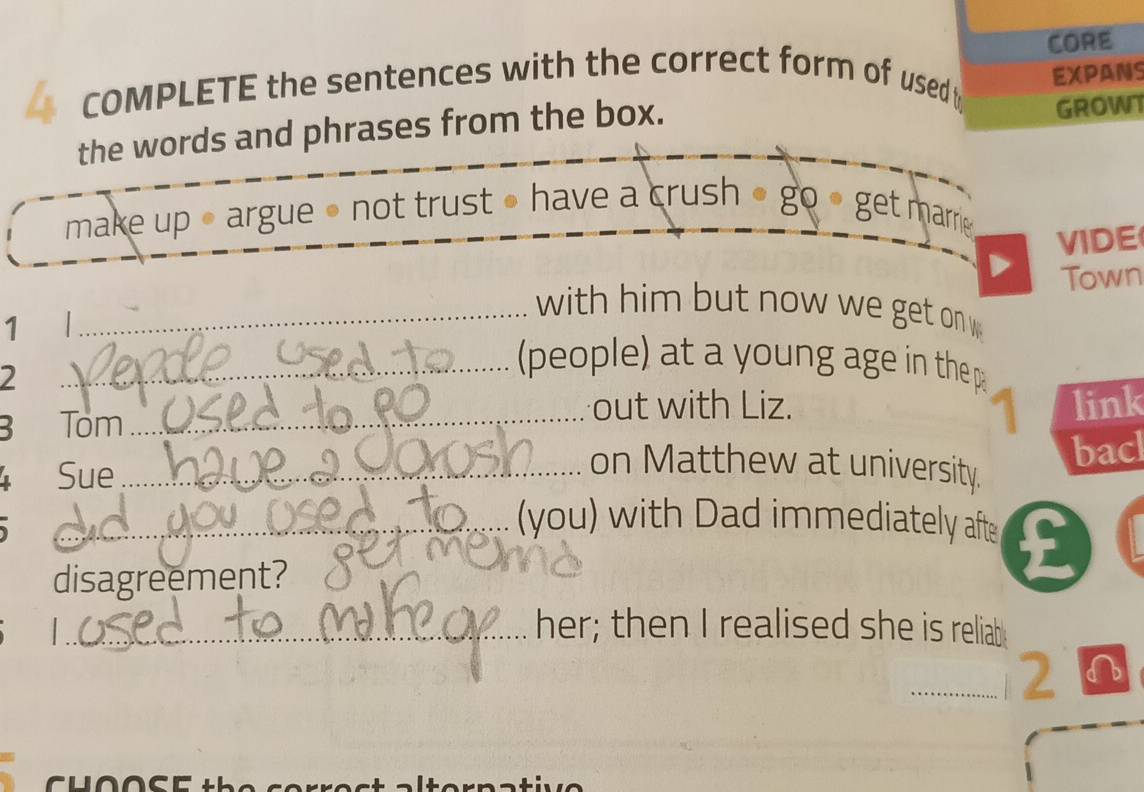 CORE
EXPANS
GROWT
4 COMPLETE the sentences with the correct form of used to
the words and phrases from the box.
make up • argue • not trust • have a crush • go • get married
VIDE
Town
1 I ........ with him but now we get on we
2 people used to (people) at a young age in the pa
3 Tom used to go out with Liz.
4 Sue have a crosh on Matthew at university.
5 did you used to (you) with Dad immediately afte
disagreement? get
I used to make up her; then I realised she is reliabl
1 link
back
£
2
CHOOSE the correct alternative